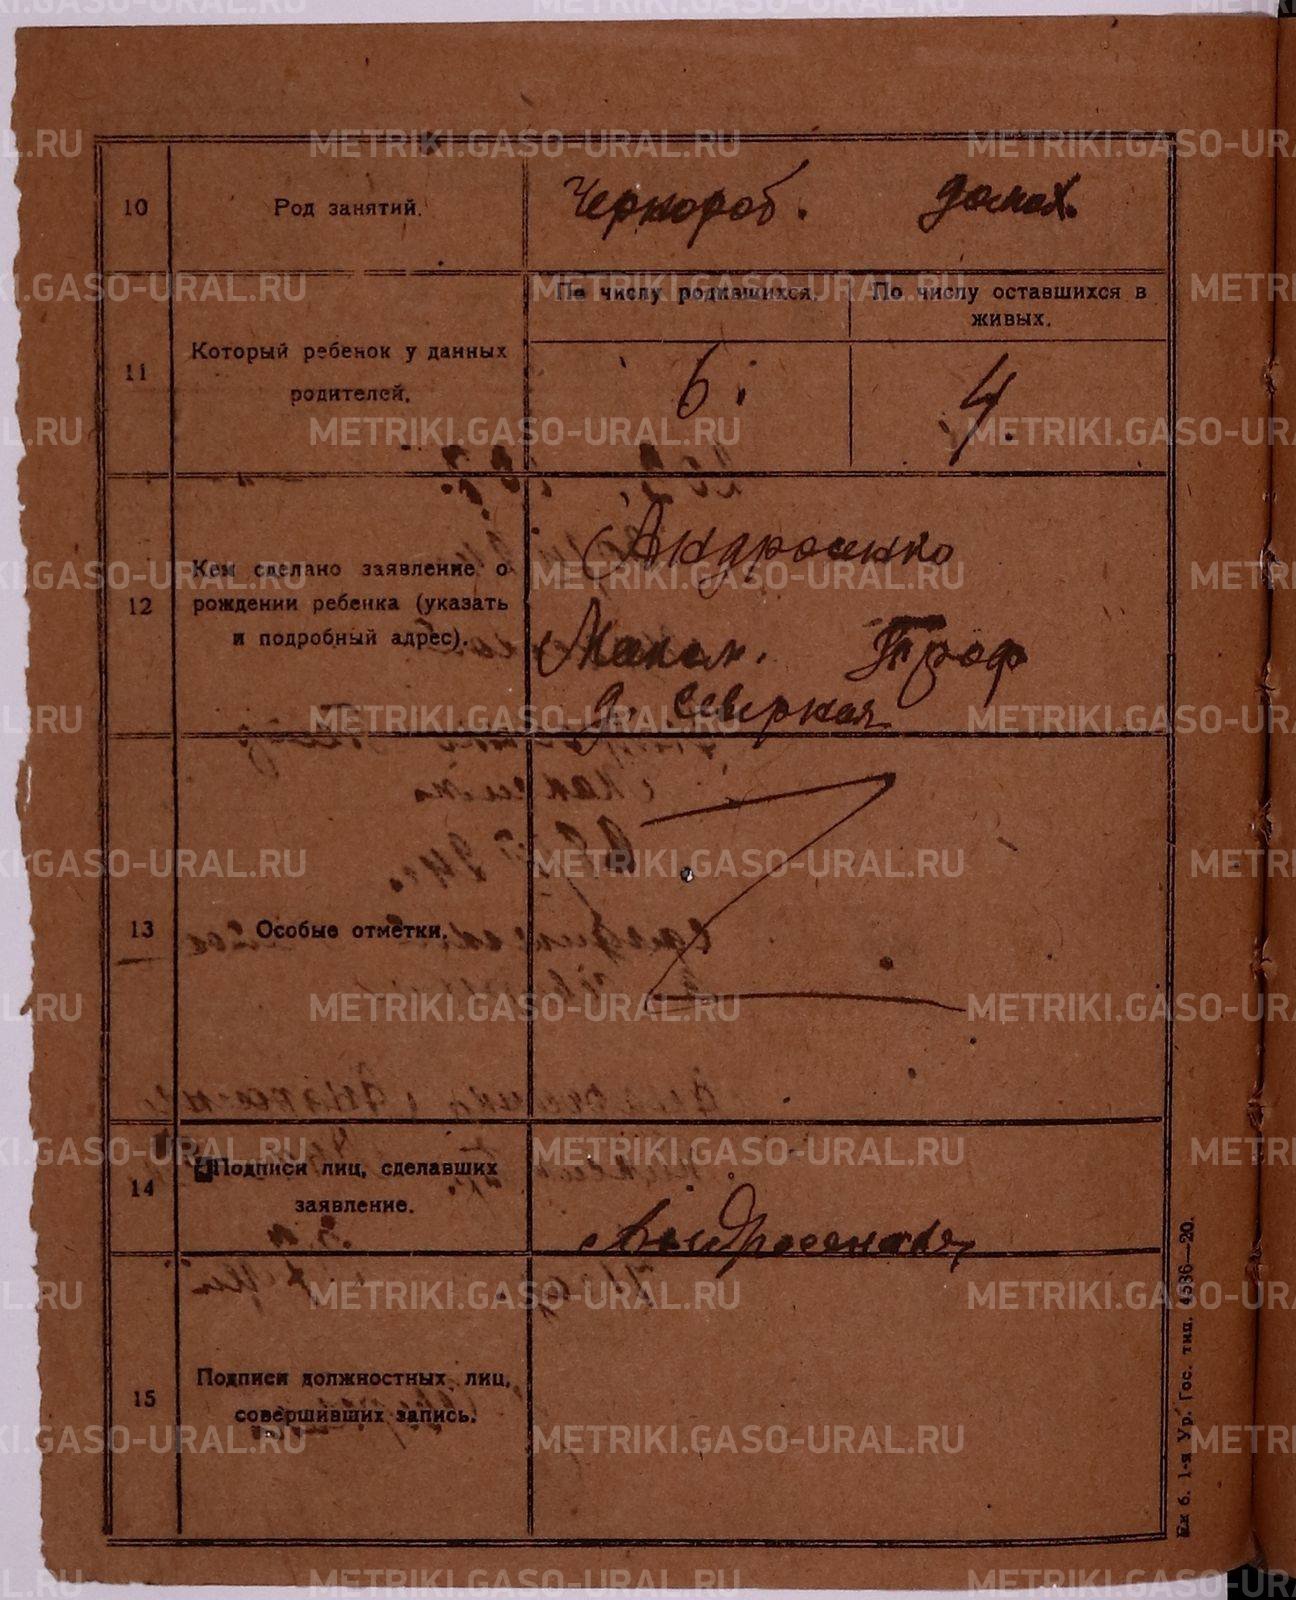 10 Род занятий. Чернороб. домах.
11 Который ребенок у данных родителей.
По числу родившихся. По числу оставшихся в живых.
6. 4.
12 Кем сделано заявление о рождении ребенка (указать и подробный адрес).
Андросенко
Проф
д. Северная
13 Особые отметки.
14 Подписи лиц, сделавших заявление.
15 Подписи должностных лиц, совершивших запись.
Ек б. 1-я Ур. Гос. тип. 4586—20.
METRIKI.GASO-URAL.RU